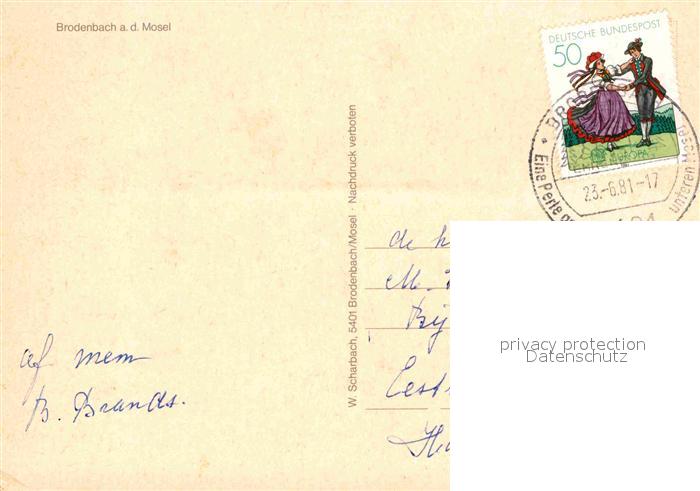 Brodenbach a. d. Mosel
DEUTSCHE BUNDESPOST
50
EUROPA
Eine Perle
unteren Mosel
23.-6.81-17
W. Scharbach, 5401 Brodenbach/Mosel · Nachdruck verboten
de h
M.
Bij
privacy protection
Datenschutz
af mem
B. Brands.